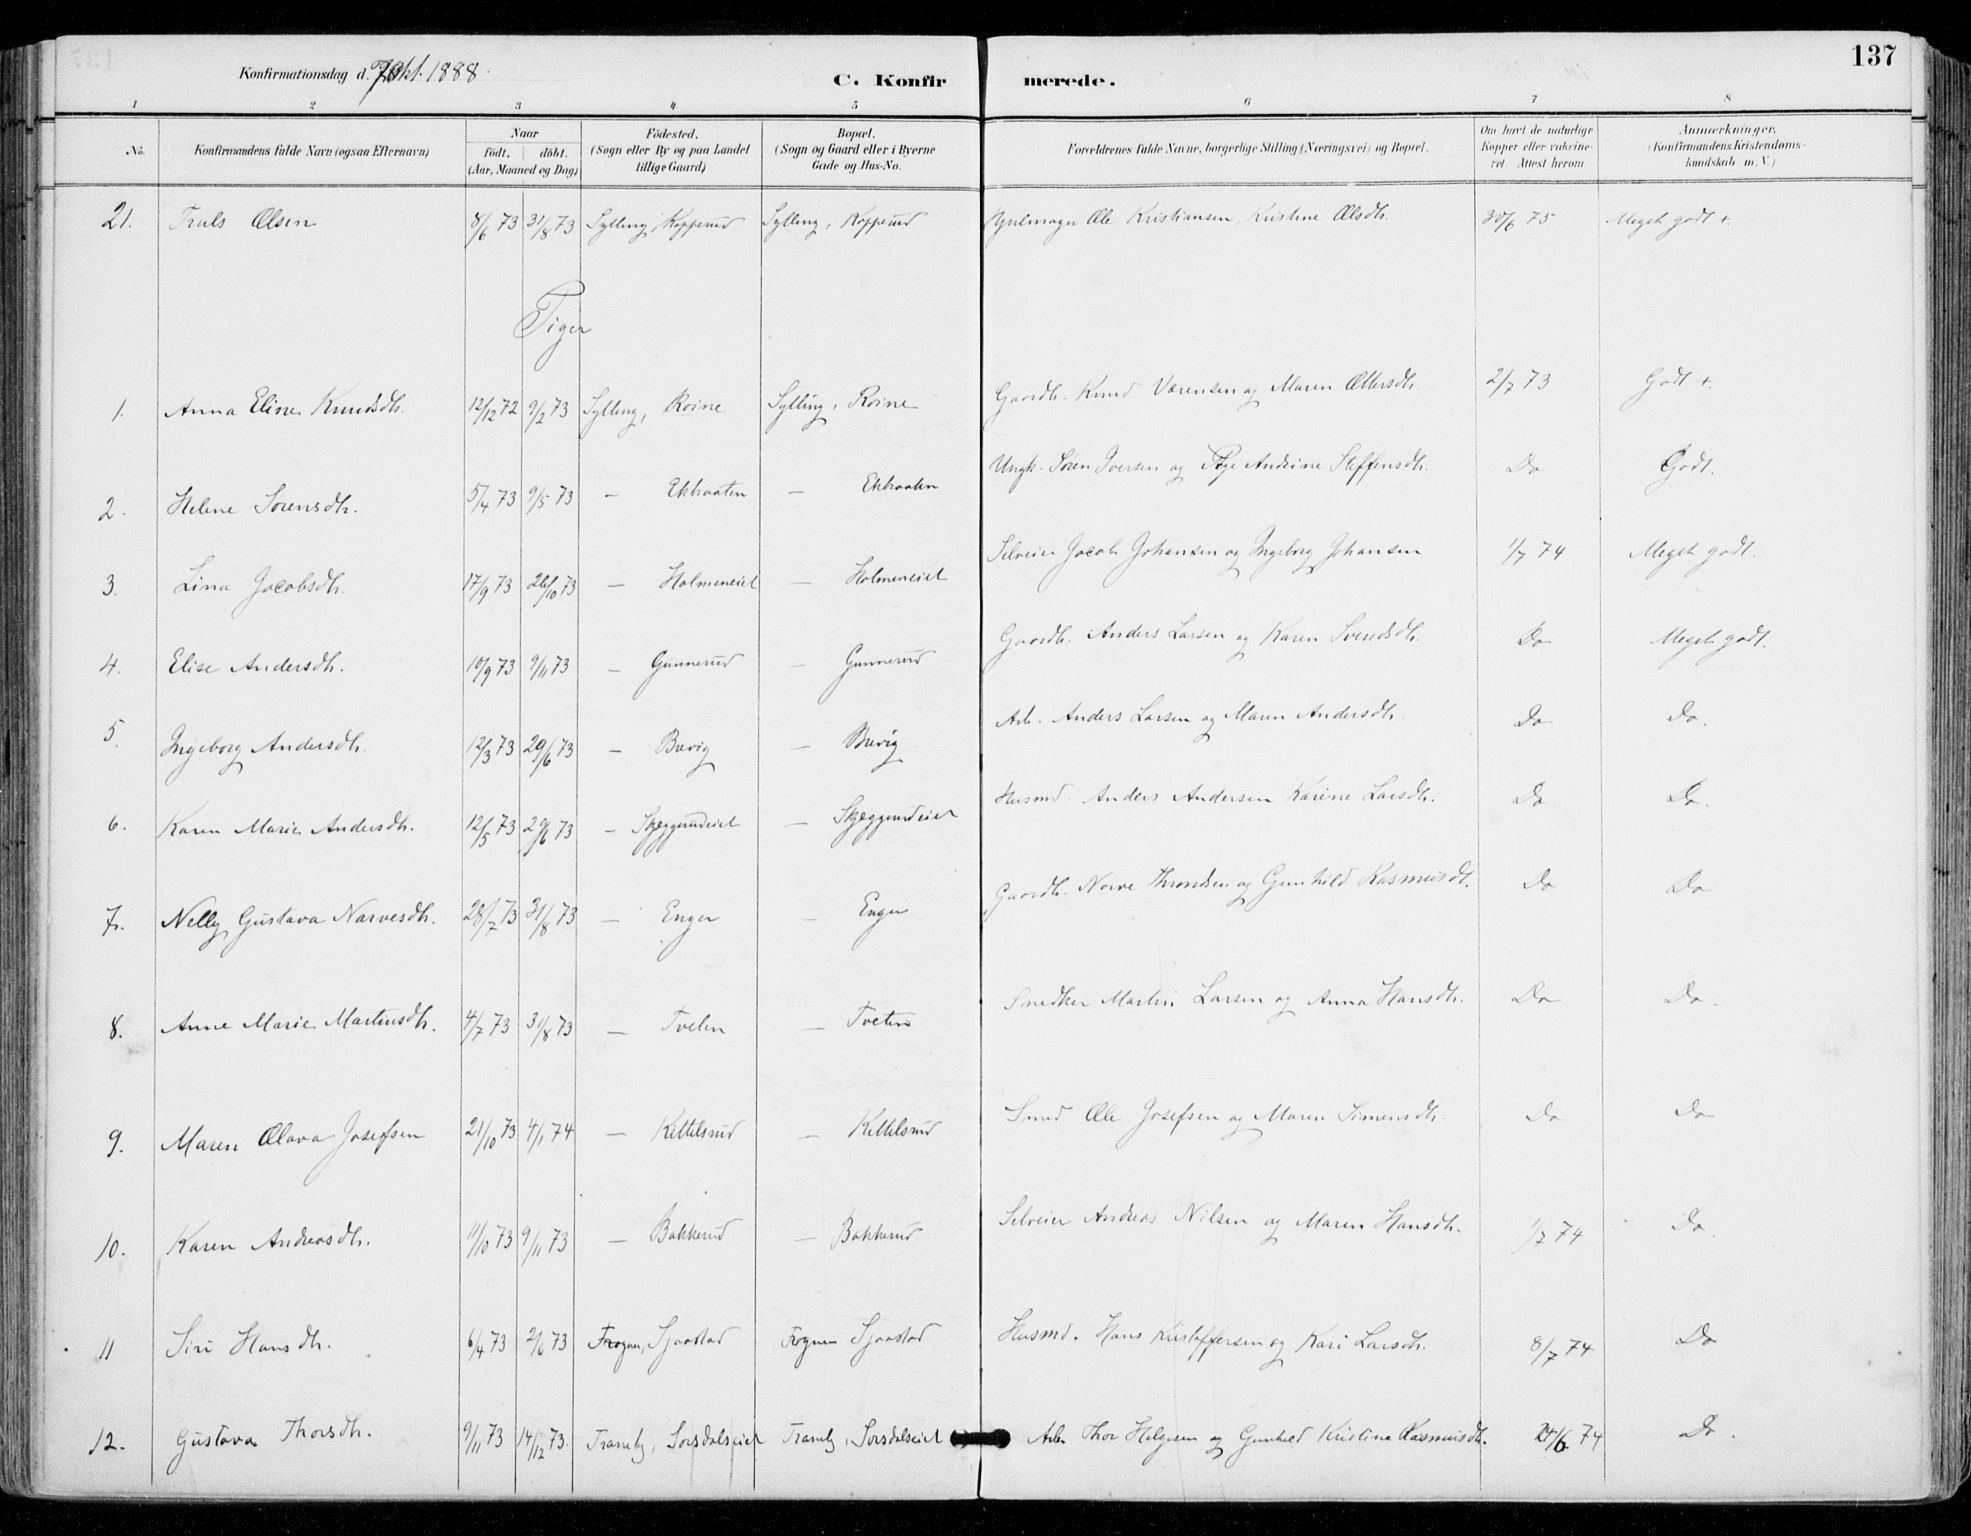 137
Konfirmationsdag d. 7 Okt. 1888.
C. Konfirmerede.
1 2 3 4 5 6 7 8
No. Konfirmandens fulde Navn (ogsaa Efternavn) Naar födt. döbt. (Aar, Maaned og Dag) Födested. (Sogn eller By og paa Landet tillige Gaard) Bopæl. (Sogn og Gaard eller i Byerne Gade og Hus-No. Forældrenes fulde Navne, borgerlige Stilling (Næringsvei) og Bopæl. Om havt de naturlige Kopper eller vakcineret. Attest herom. Anmærkninger. (Konfirmandens Kristendomskundskab m. V.)
21. Truls Olsen 8/6 73 31/8 73 Sylling, Kopperud Sylling, Kopperud Hjulmager Ole Kristiansen, Kristine Olsdtr. 30/6 75 Meget godt +.
Piger
1. Anna Eline Knudsdtr. 12/12 72 9/2 73 Sylling, Roine Sylling, Roine Gaardb. Knud Værensen og Maren Ottersdtr. 2/7 73 Godt +.
2. Helene Sörensdtr. 5/4 73 9/5 73 — Ekhraaten — Ekhraaten Ungk. Sören Iversen og Pige Andrine Steffensdtr. Do Godt.
3. Lina Jacobsdtr. 17/9 73 26/10 73 — Holmeneiet — Holmeneiet Selveier Jacob Johansen og Ingeborg Johansen 1/7 74 Meget godt.
4. Elise Andersdtr. 10/9 73 9/11 73 — Gunnerud — Gunnerud Gaardb. Anders Larsen og Karen Svendsdtr. Do Meget godt.
5. Ingeborg Andersdtr. 12/3 73 29/6 73 — Bævig — Bævig Arb. Anders Larsen og Maren Andersdtr. Do Do.
6. Karen Marie Andersdtr. 12/5 73 29/6 73 — Skjeggerudeiet — Skjeggerudeiet Husmd. Anders Andersen Karine Larsdtr. Do Do.
7. Nelly Gustava Narvesdtr. 28/7 73 31/8 73 — Enger — Enger Gaardb. Narve Throndsen og Gunhild Rasmusdt. Do Do
8. Anne Marie Martinsdtr. 4/7 73 31/8 73 — Tveten — Tveten Snedker Martin Larsen og Anna Hansdtr. Do Do.
9. Maren Olava Josefsen 21/10 73 4/1 74 — Kittilsrud — Kittilsrud Smed Ole Josefsen og Maren Simensdtr. Do Do
10. Karen Andreasdtr. 11/10 73 9/11 73 — Bakkerud — Bakkerud Selveier Andreas Nilsen og Maren Hansdtr. 1/7 74 Do.
11 Siri Hansdtr. 6/4 73 2/6 73 Frogner, Sjaastad Frogner Sjaastad Husmd. Hans Kristoffersen og Kari Larsdtr. 8/7 74 Do
12. Gustava Thorsdtr. 9/11 73 14/12 73. Tranby, Sorsdalseiet Tranby, Sorsdalseiet Arb. Thor Helgesen og Gunhild Kristine Rasmusdtr. /6 74 Do.